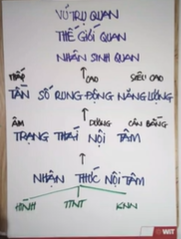 VŨ TRỤ QUAN
THẾ GIỚI QUAN
NHÂN SINH QUAN
THẤP CAO SIÊU CAO
TẦN SỐ RUNG ĐỘNG NĂNG LƯỢNG
ÂM DƯƠNG CÂN BẰNG
TRẠNG THÁI NỘI TÂM
NHẬN THỨC NỘI TÂM
HÌNH TTNT KNN